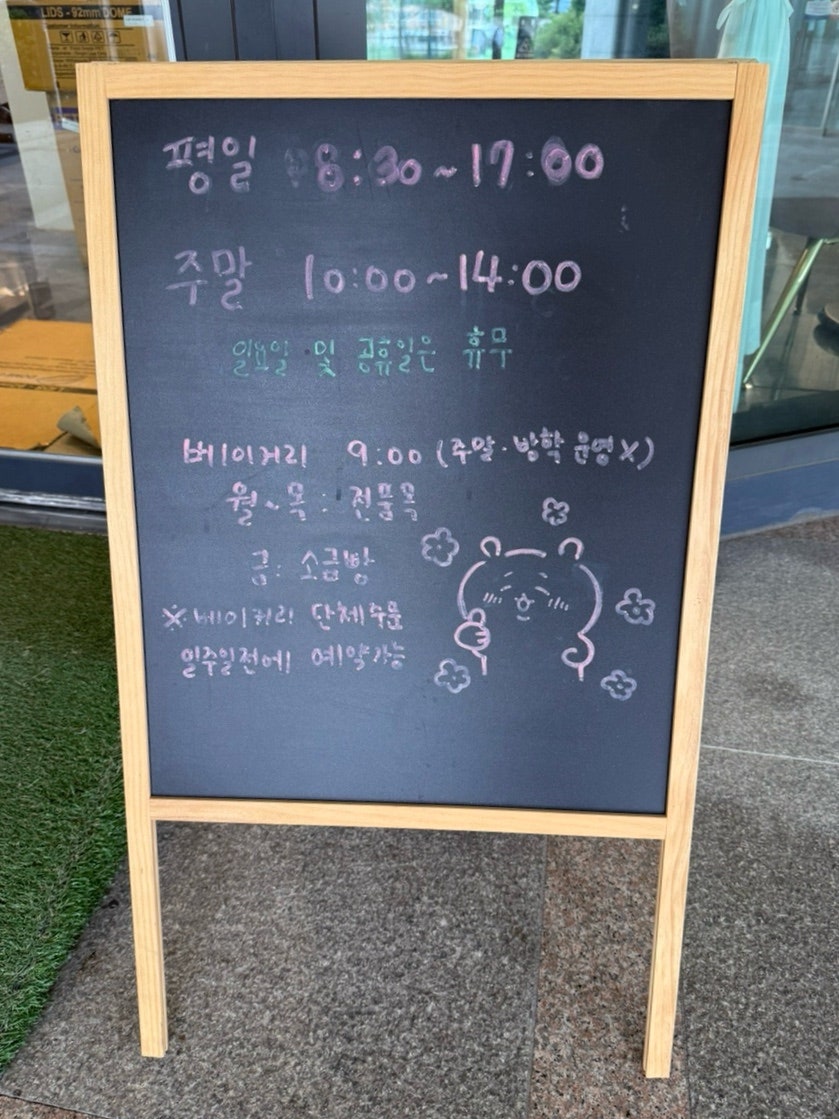 LIDS - 92mm DOME
평일 8:30~17:00
주말 10:00~14:00
일요일 및 공휴일은 휴무
베이커리 9:00 (주말·방학 운영X)
월~목: 전품목
금: 소금빵
※베이커리 단체주문
일주일전에 예약가능